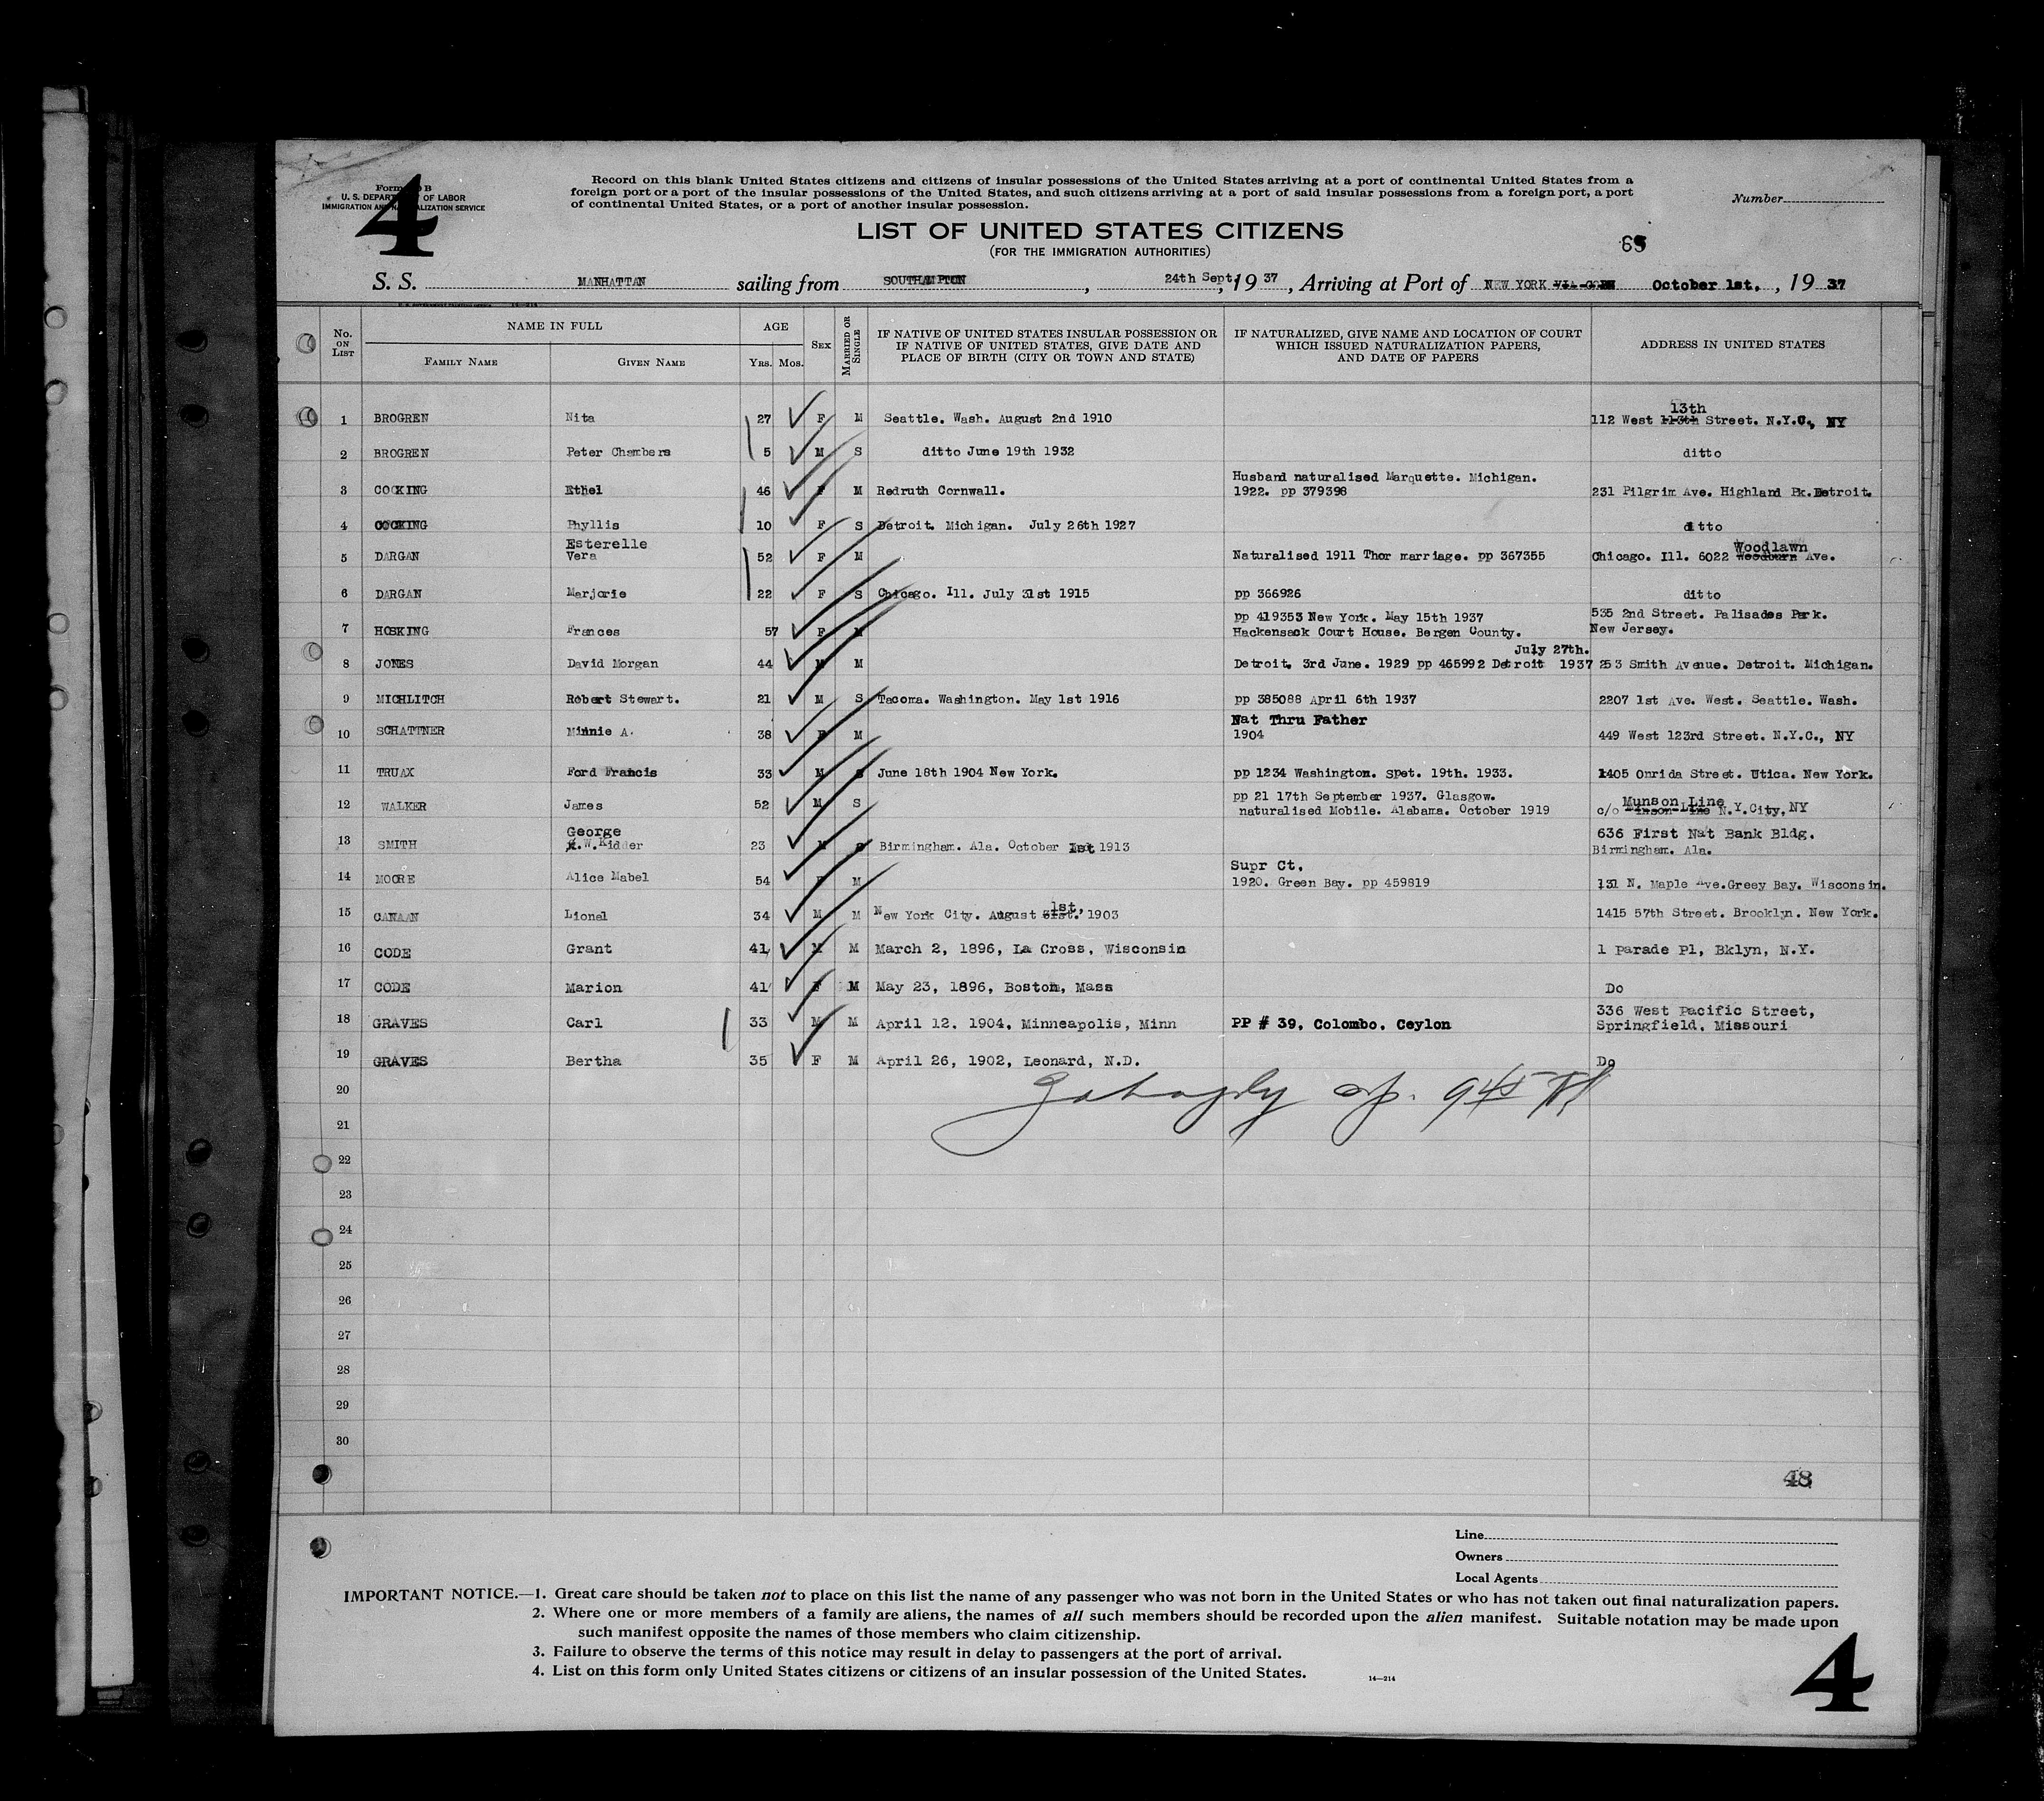 4
Form B
U. S. DEPARTMENT OF LABOR
IMMIGRATION AND NATURALIZATION SERVICE
Record on this blank United States citizens and citizens of insular possessions of the United States arriving at a port of continental United States from a
foreign port or a port of the insular possessions of the United States, and such citizens arriving at a port of said insular possessions from a foreign port, a port
of continental United States, or a port of another insular possession.
Number
LIST OF UNITED STATES CITIZENS
(FOR THE IMMIGRATION AUTHORITIES)
S. S. MANHATTAN sailing from SOUTHAMPTON, 24th Sept, 19 37, Arriving at Port of NEW YORK October 1st., 19 37
No. ON LIST NAME IN FULL FAMILY NAME GIVEN NAME AGE YRS. MOS. SEX MARRIED OR SINGLE
IF NATIVE OF UNITED STATES INSULAR POSSESSION OR
IF NATIVE OF UNITED STATES, GIVE DATE AND
PLACE OF BIRTH (CITY OR TOWN AND STATE)
IF NATURALIZED, GIVE NAME AND LOCATION OF COURT
WHICH ISSUED NATURALIZATION PAPERS,
AND DATE OF PAPERS
ADDRESS IN UNITED STATES
13th
1 BROGREN Nita 27 F M Seattle. Wash. August 2nd 1910 112 West 113th Street. N.Y.C., NY
2 BROGREN Peter Chambers 5 M S ditto June 19th 1932 ditto
Husband naturalised Marquette. Michigan.
3 COCKING Ethel 46 F M Redruth Cornwall. 1922. pp 379398 231 Pilgrim Ave. Highland Pk. Detroit.
4 COCKING Phyllis 10 F S Detroit. Michigan. July 26th 1927 ditto
Esterelle Woodlawn
5 DARGAN Vera 52 F M Naturalised 1911 Thor marriage. pp 367355 Chicago. Ill. 6022 Woodburn Ave.
6 DARGAN Marjorie 22 F S Chicago. Ill. July 31st 1915 pp 366926 ditto
pp 419353 New York. May 15th 1937 535 2nd Street. Palisades Park.
7 HOSKING Frances 57 F M Hackensack Court House. Bergen County. New Jersey.
July 27th.
8 JONES David Morgan 44 M M Detroit. 3rd June. 1929 pp 465992 Detroit 1937 253 Smith Avenue. Detroit. Michigan.
9 MICHLITCH Robert Stewart. 21 M S Tacoma. Washington. May 1st 1916 pp 385088 April 6th 1937 2207 1st Ave. West. Seattle. Wash.
Nat Thru Father
10 SCHATTNER Minnie A. 38 F M 1904 449 West 123rd Street. N.Y.C., NY
11 TRUAX Ford Francis 33 M S June 18th 1904 New York. pp 1234 Washington. spet. 19th. 1933. 1405 Onrida Street. Utica. New York.
pp 21 17th September 1937. Glasgow. Munson Line
12 WALKER James 52 M S naturalised Mobile. Alabama. October 1919 c/o N.Y.City, NY
George 636 First Nat Bank Bldg.
13 SMITH W. Kidder 23 M S Birmingham. Ala. October 1st 1913 Birmingham. Ala.
Supr Ct.
14 MOORE Alice Mabel 54 F M 1920. Green Bay. pp 459819 131 N. Maple Ave. Greey Bay. Wisconsin.
1st,
15 CANAAN Lionel 34 M M New York City. August 31st. 1903 1415 57th Street. Brooklyn. New York.
16 CODE Grant 41 M M March 2, 1896, La Cross, Wisconsin 1 Parade Pl, Bklyn, N.Y.
17 CODE Marion 41 F M May 23, 1896, Boston, Mass Do
336 West Pacific Street,
18 GRAVES Carl 33 M M April 12. 1904, Minneapolis, Minn PP # 39, Colombo. Ceylon Springfield. Missouri
19 GRAVES Bertha 35 F M April 26, 1902, Leonard, N.D. Do
20
21
22
23
24
25
26
27
28
29
30
48
Line
Owners
Local Agents
IMPORTANT NOTICE.—1. Great care should be taken not to place on this list the name of any passenger who was not born in the United States or who has not taken out final naturalization papers.
2. Where one or more members of a family are aliens, the names of all such members should be recorded upon the alien manifest. Suitable notation may be made upon
such manifest opposite the names of those members who claim citizenship.
3. Failure to observe the terms of this notice may result in delay to passengers at the port of arrival.
4. List on this form only United States citizens or citizens of an insular possession of the United States.
14—214
4